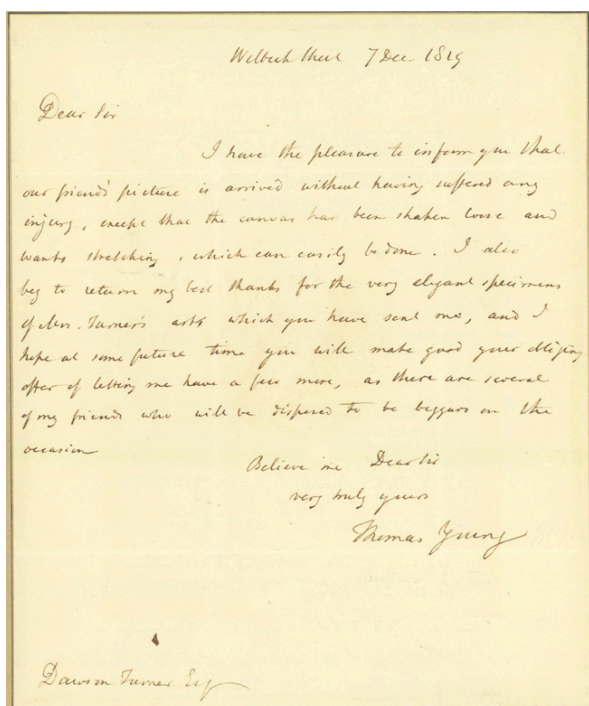 Welbeck Street 7 Dec 1819
Dear Sir
I have the pleasure to inform you that
our friend's picture is arrived without having suffered any
injury, except that the canvas has been shaken loose and
wants stretching, which can easily be done. I also
beg to return my best thanks for the very elegant specimens
of Mrs. Turner's arts which you have sent me, and I
hope at some future time you will make good your obliging
offer of letting me have a few more, as there are several
of my friends who will be disposed to be beggars on the
occasion
Believe me Dear Sir
very truly yours
Thomas Young
Dawson Turner Esq